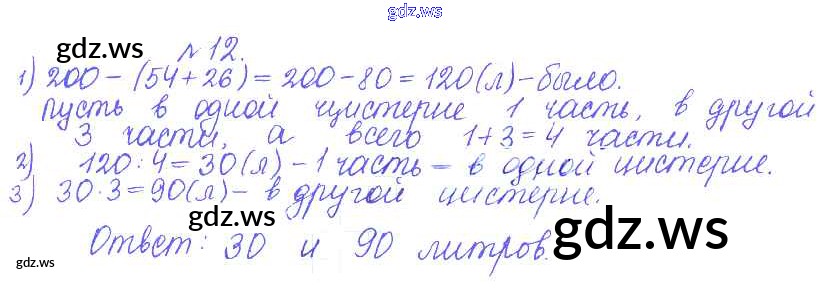 gdz.ws
gdz.ws
№ 12.
1) 200 - (54 + 26) = 200 - 80 = 120 (л) - было.
пусть в одной цистерне 1 часть, в другой
3 части, а всего 1 + 3 = 4 части.
2) 120 : 4 = 30 (л) - 1 часть - в одной цистерне.
3) 30 · 3 = 90 (л) - в другой цистерне.
gdz.ws
gdz.ws
Ответ: 30 и 90 литров.
gdz.ws